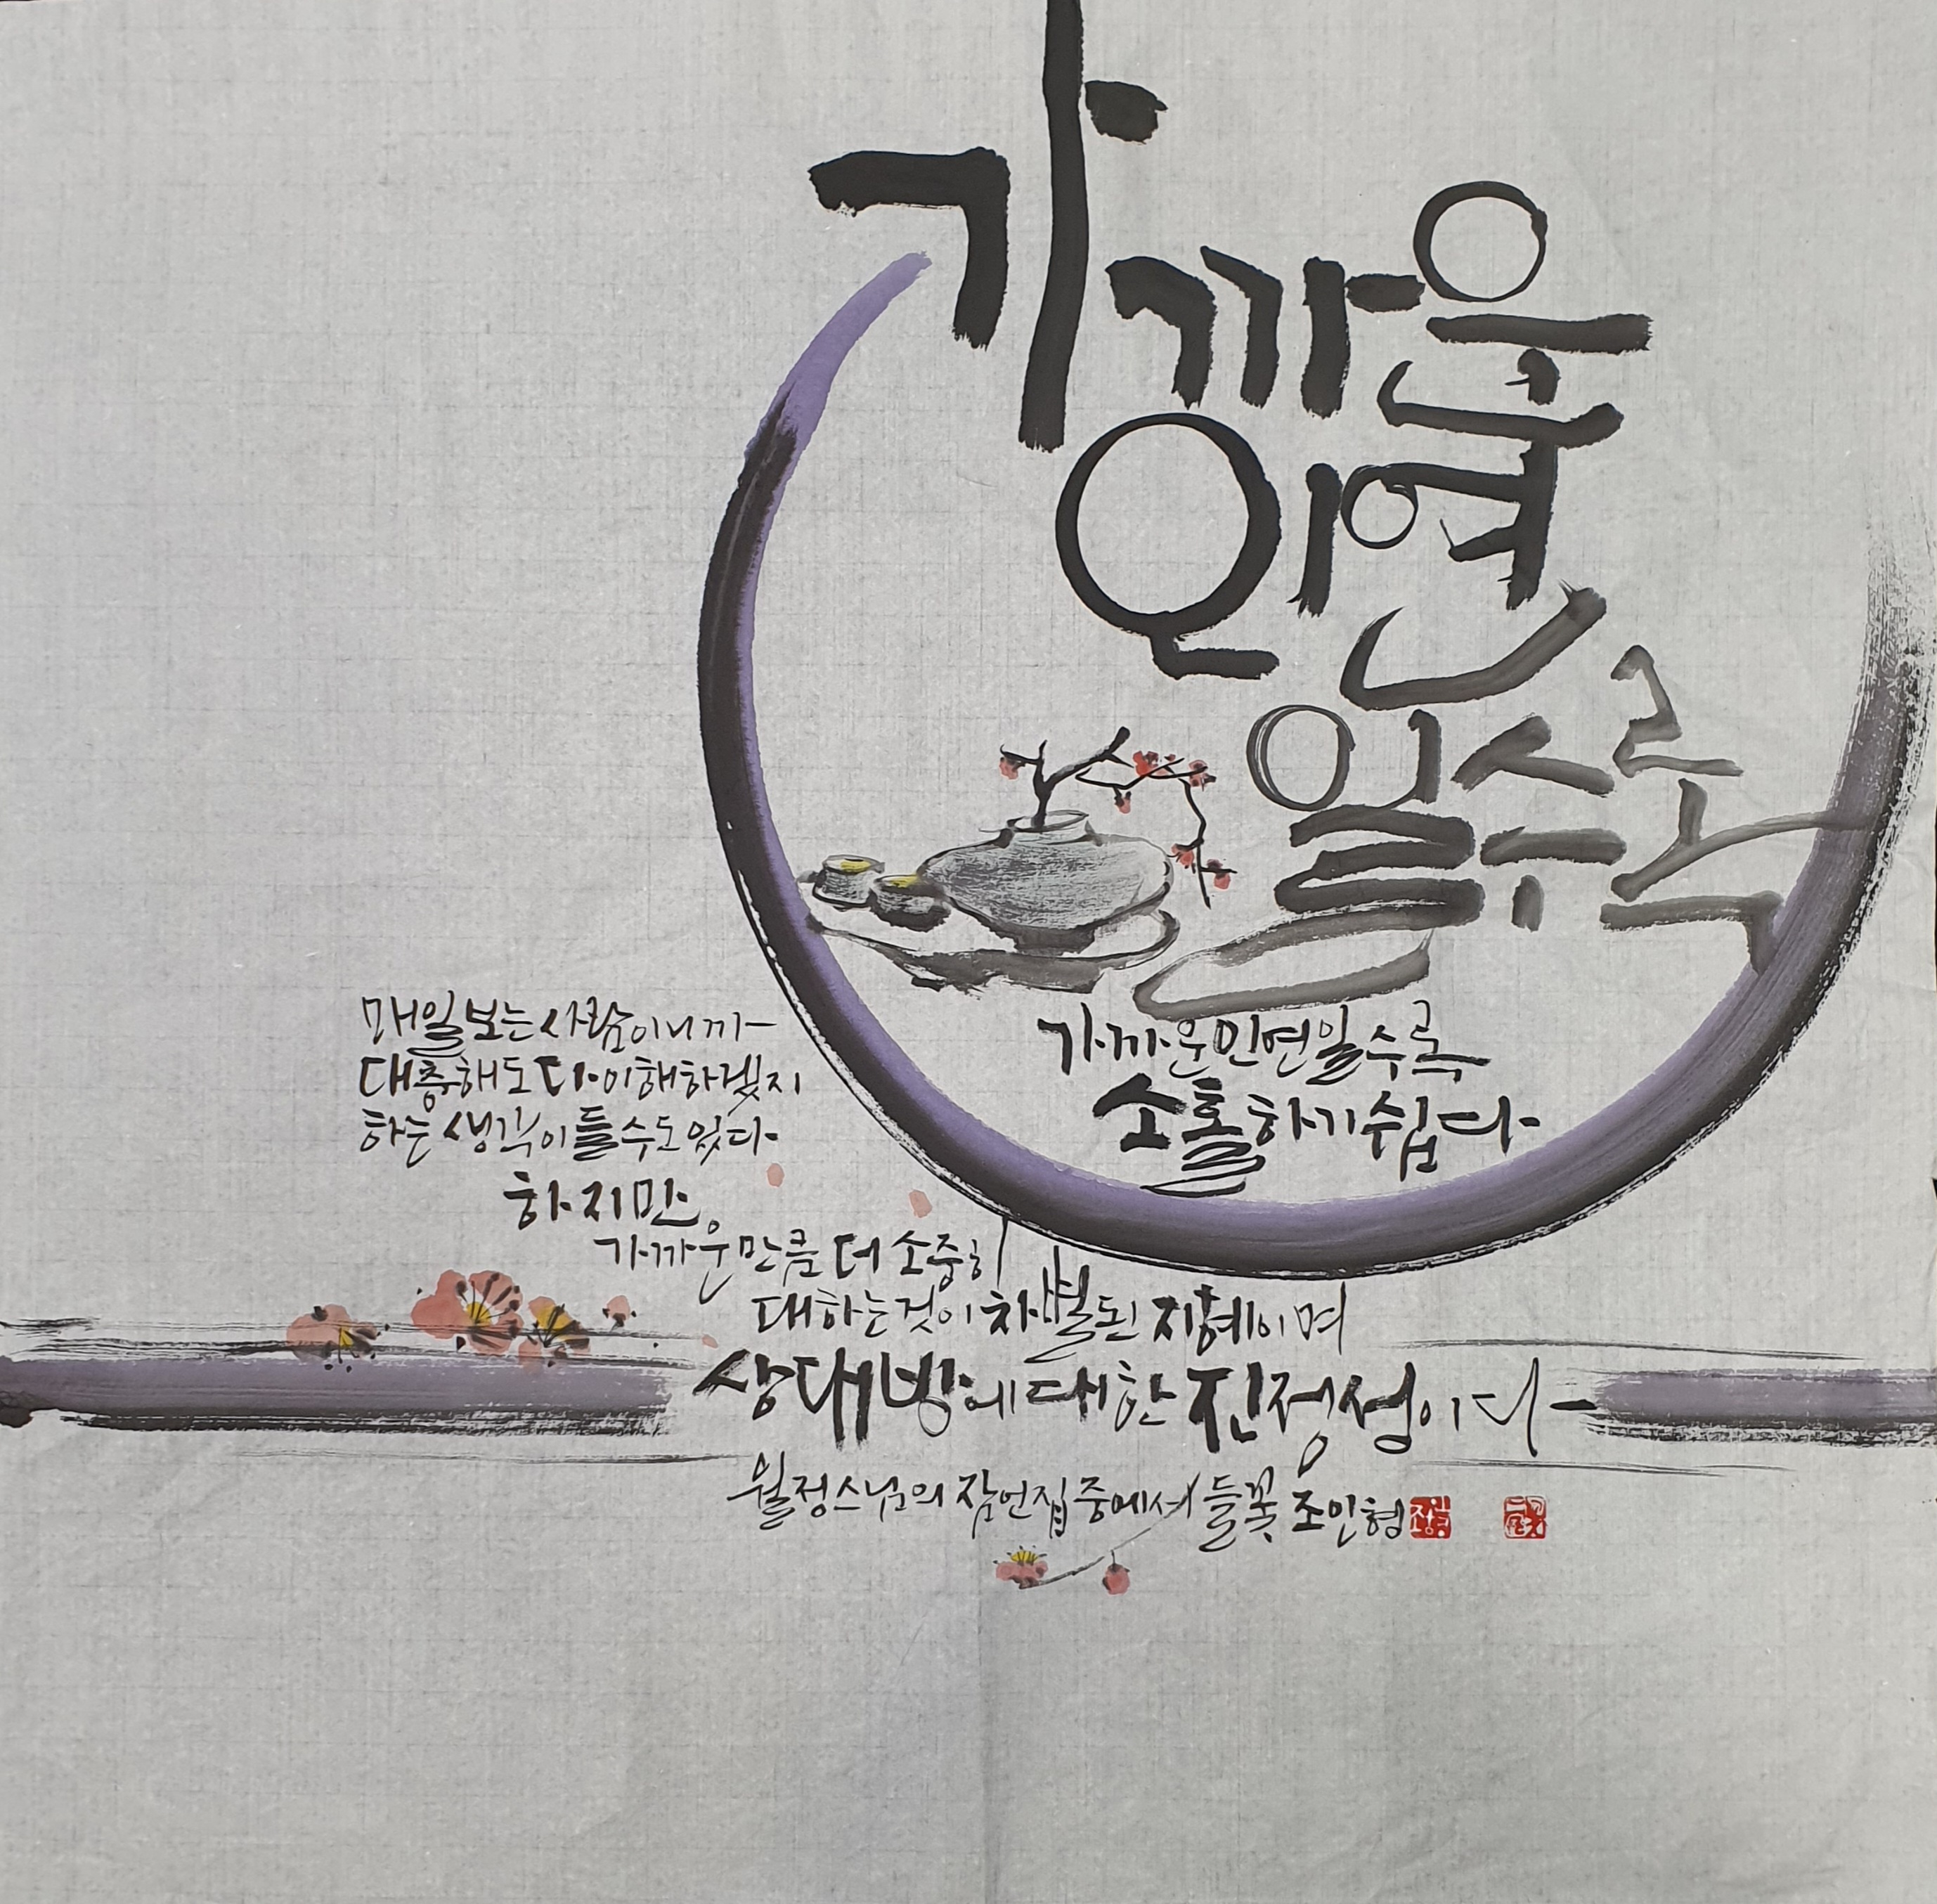 가까운
인연
일수록
가까운 인연일수록
소홀하기 쉽다
매일 보는 사람이니까
대충해도 다 이해하겠지
하는 생각이 들 수도 있다
하지만,
가까운 만큼 더 소중히
대하는 것이 차별된 지혜이며
상대방에 대한 진정성이다
월정스님의 잠언집 중에서 들꽃 조인형